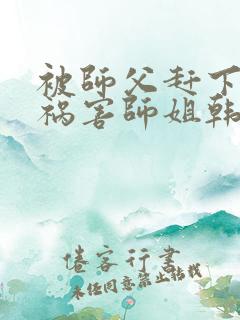 被師父赶下
祸害師姐韩
倦客行書
未经同意禁止转载